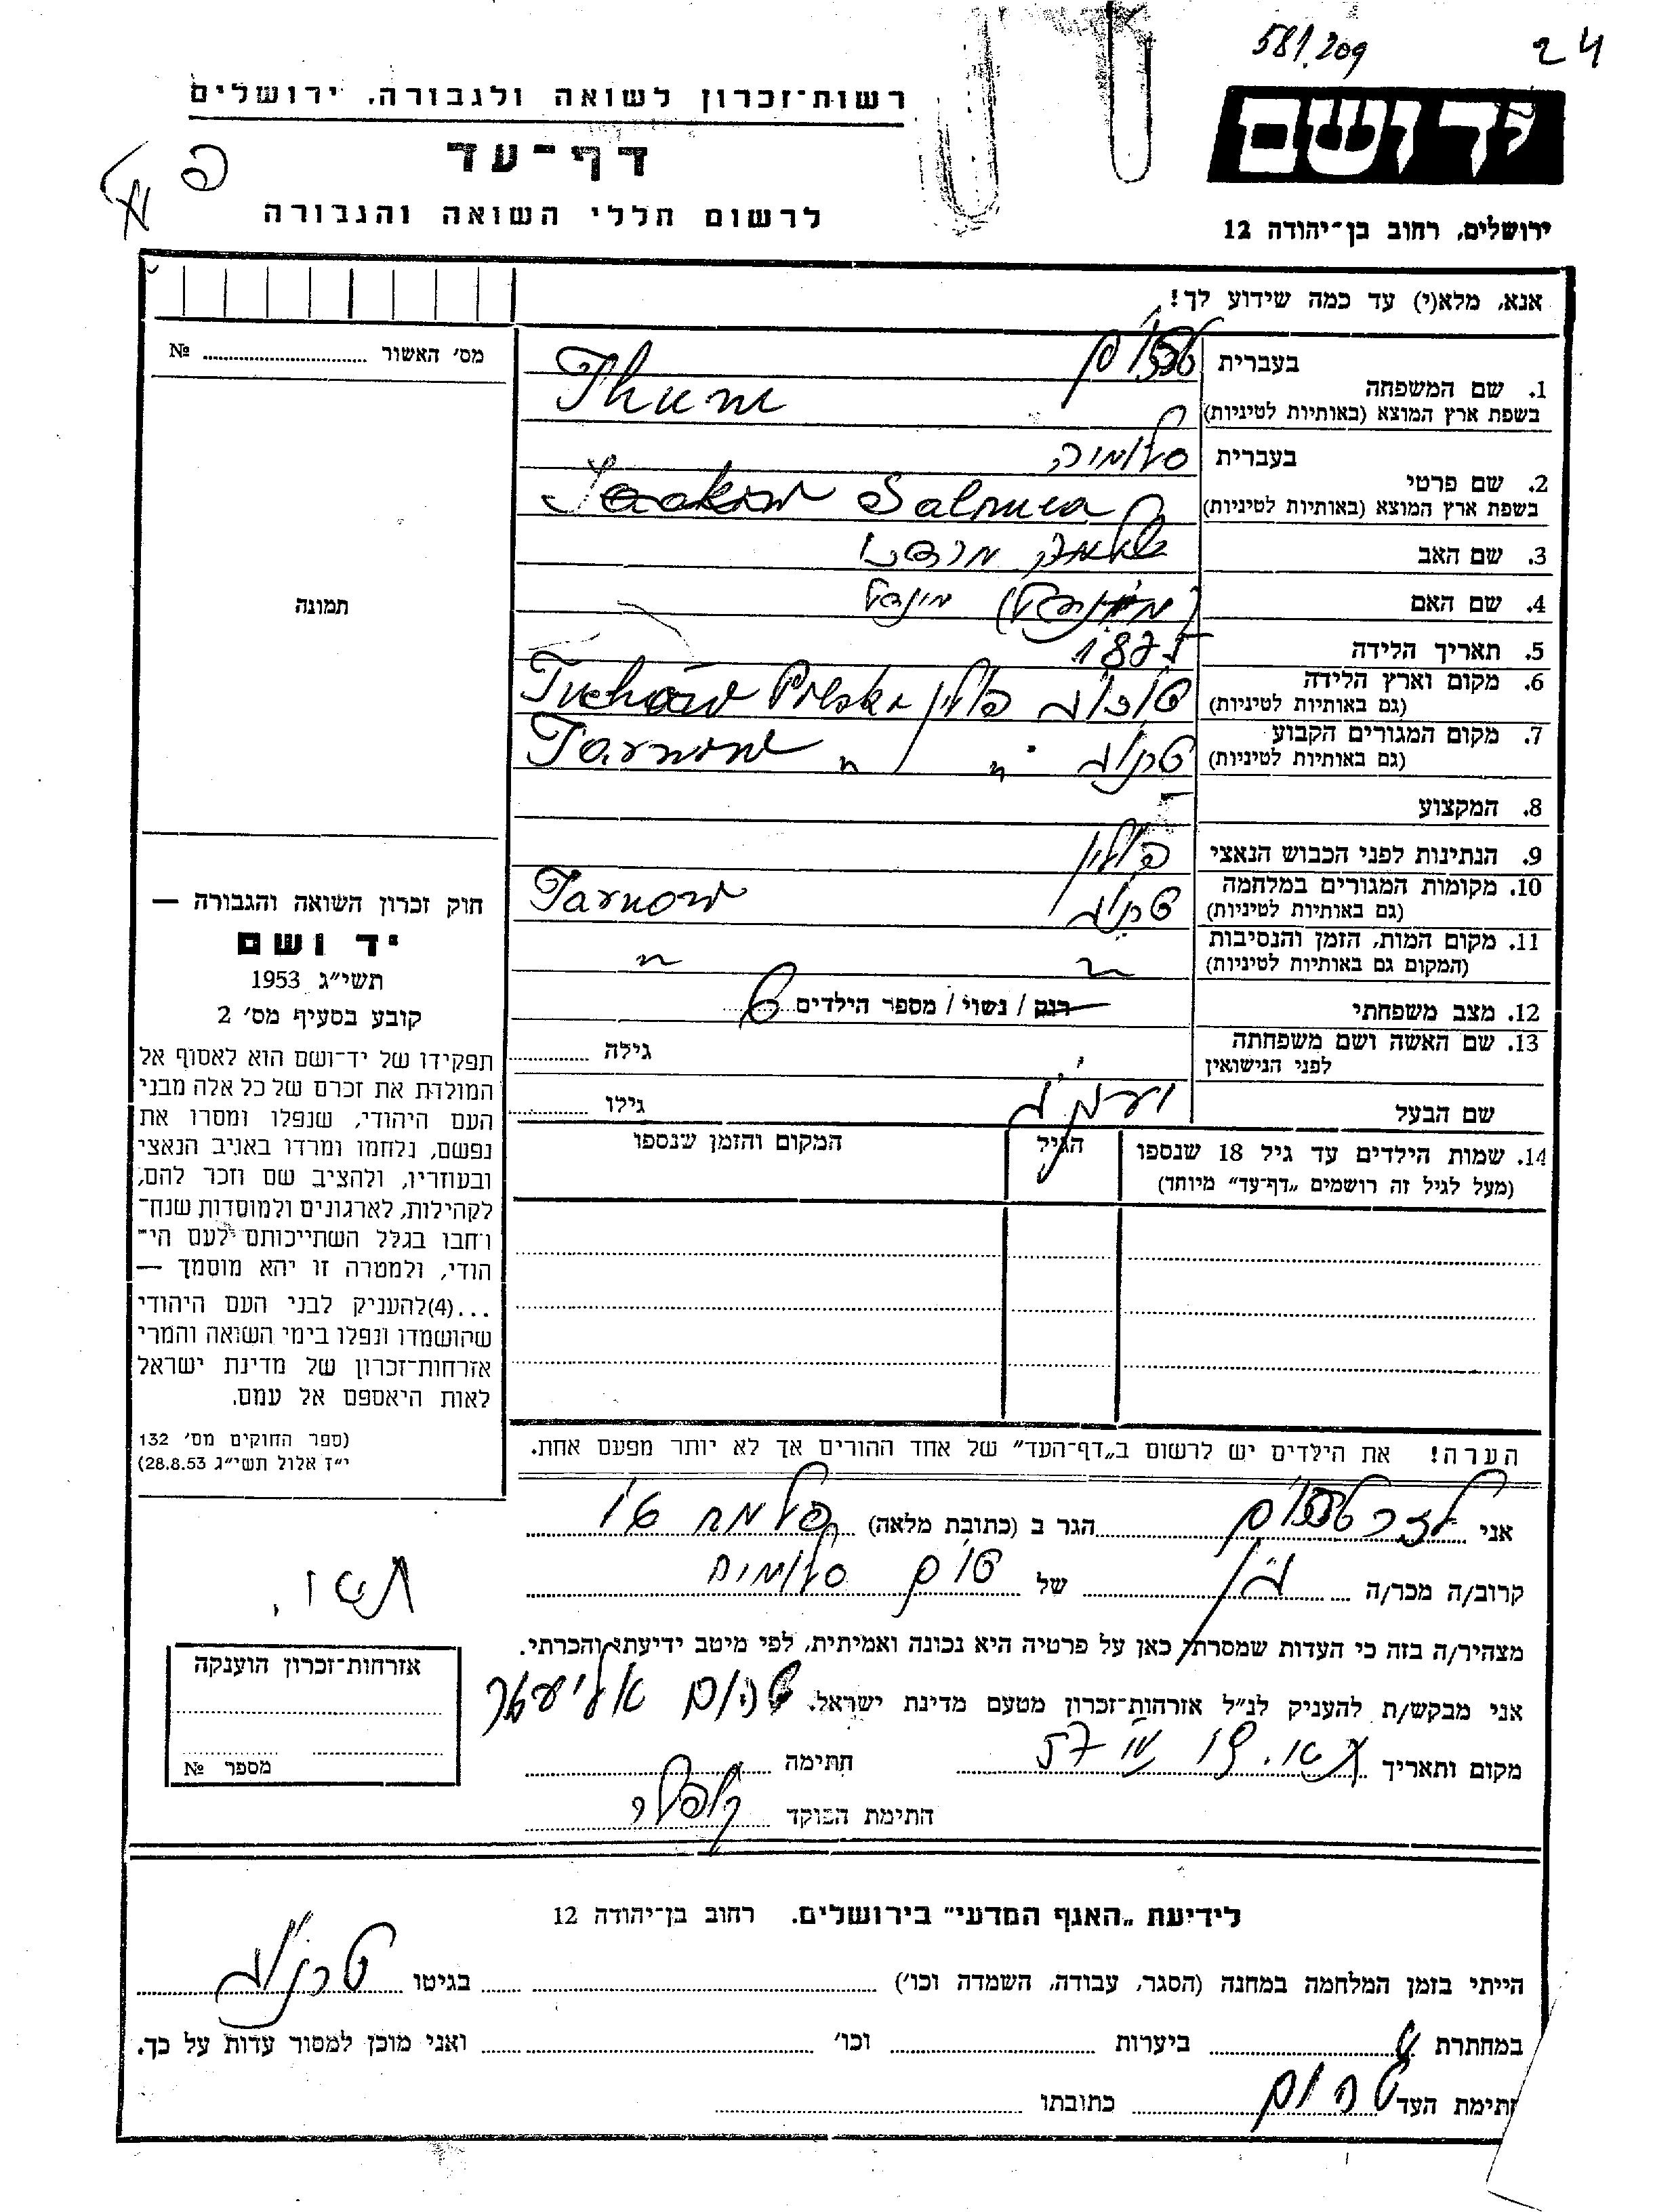 581.209
24
רשות־זכרון לשואה ולגבורה. ירושלים
יד ושם
דף־עד
פ
לרשום חללי השואה והגבורה
ירושלים, רחוב בן־יהודה 12
אנא, מלא(י) עד כמה שידוע לך!
מס׳ האשור № ..........
תמונה
1. שם המשפחה
בעברית
בשפת ארץ המוצא (באותיות לטיניות) Thum
2. שם פרטי
בעברית סלומיה
בשפת ארץ המוצא (באותיות לטיניות) Salomea
3. שם האב
4. שם האם מינדל
5. תאריך הלידה 1875
6. מקום וארץ הלידה
(גם באותיות לטיניות) טוכוב פולין Tuchów Polska
7. מקום המגורים הקבוע
(גם באותיות לטיניות) טרנוב " Tarnow "
8. המקצוע
9. הנתינות לפני הכבוש הנאצי פולין
10. מקומות המגורים במלחמה
(גם באותיות לטיניות) טרנוב Tarnow
11. מקום המות, הזמן והנסיבות
(המקום גם באותיות לטיניות) " "
12. מצב משפחתי רווק / נשוי / מספר הילדים 6
13. שם האשה ושם משפחתה
לפני הנישואין
גילה ..........
שם הבעל
גילו ..........
14. שמות הילדים עד גיל 18 שנספו
(מעל לגיל זה רושמים „דף־עד” מיוחד)
הגיל
המקום והזמן שנספו
חוק זכרון השואה והגבורה —
יד ושם
תשי״ג 1953
קובע בסעיף מס׳ 2
תפקידו של יד־ושם הוא לאסוף אל
המולדת את זכרם של כל אלה מבני
העם היהודי, שנפלו ומסרו את
נפשם, נלחמו ומרדו באויב הנאצי
ובעוזריו, ולהציב שם וזכר להם,
לקהילות, לארגונים ולמוסדות שנח־
רבו בגלל השתייכותם לעם הי־
הודי, ולמטרה זו יהא מוסמך —
...(4)להעניק לבני העם היהודי
שהושמדו ונפלו בימי השואה והמרי
אזרחות־זכרון של מדינת ישראל
לאות היאספם אל עמם.
(ספר החוקים מס׳ 132
י״ז אלול תשי״ג 28.8.53)
הערה! את הילדים יש לרשום ב„דף־העד” של אחד ההורים אך לא יותר מפעם אחת.
אני .......... הגר ב (כתובת מלאה)
קרוב/ה מכר/ה בן של טום סלומיה
מצהיר/ה בזה כי העדות שמסרתי כאן על פרטיה היא נכונה ואמיתית, לפי מיטב ידיעתי והכרתי.
אני מבקש/ת להעניק לנ״ל אזרחות־זכרון מטעם מדינת ישראל. טהום אליעזר
מקום ותאריך .......... חתימה ..........
חתימת הפוקד
אזרחות־זכרון הוענקה
מספר №
לידיעת „האגף המדעי” בירושלים. רחוב בן־יהודה 12
הייתי בזמן המלחמה במחנה (הסגר, עבודה, השמדה וכו׳) .......... בגיטו טרנוב
במחתרת .......... ביערות .......... וכו׳ .......... ואני מוכן למסור עדות על כך.
חתימת העד טהום כתובתו ..........